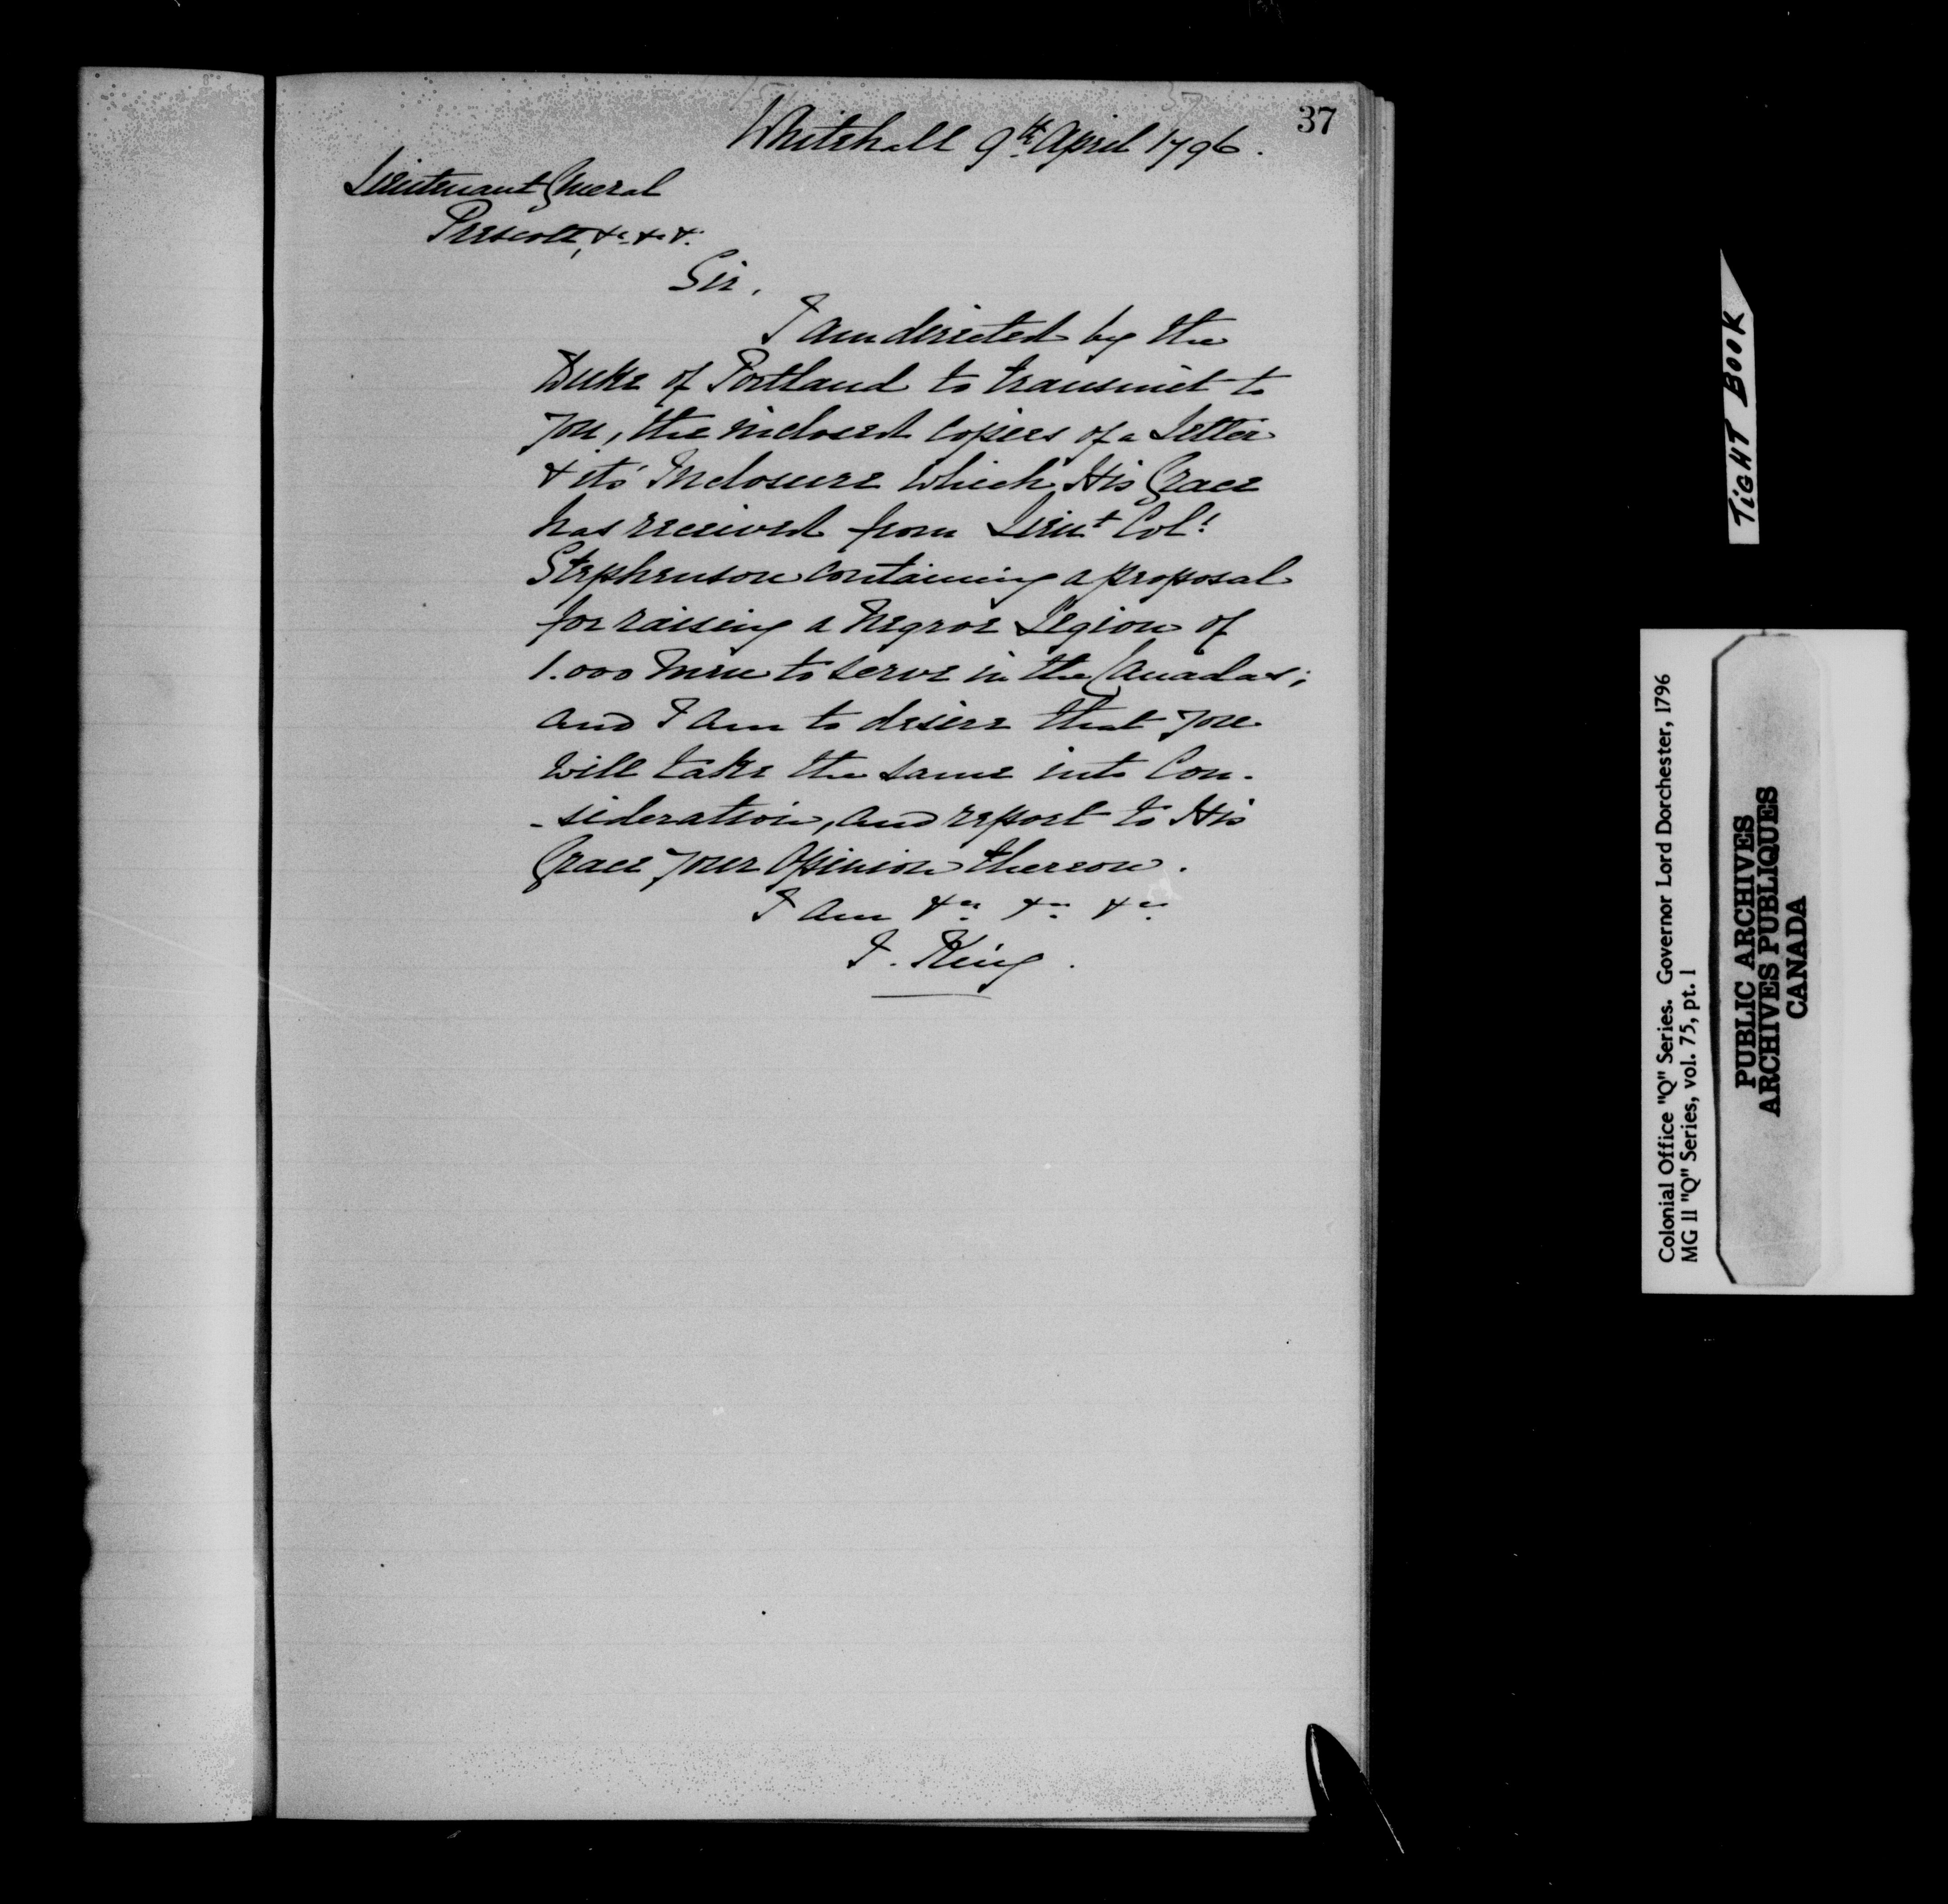 37
Whitehall 9th. April 1796.
Lieutenant General
Prescott, &c. &c &.
Sir,
I am directed by the
Duke of Portland to transmit to
you, the inclosed Copies of a Letter
& its' Inclosure which His Grace
has received from Lieut Col!
Stephenson containing a proposal
for raising a Negroe Legion of
1.000 Men to serve in the Canadas;
and I am to desire that you
will take the same into Con-
-sideration, and report to His
Grace your Opinion thereon.
I am &c. &c. &c.
J. King.
TIGHT BOOK
Colonial Office "Q" Series. Governor Lord Dorchester, 1796
MG 11 "Q" Series, vol. 75, pt. 1
PUBLIC ARCHIVES
ARCHIVES PUBLIQUES
CANADA